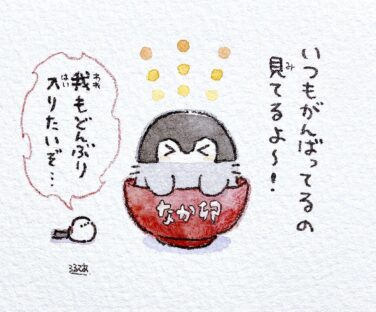 いつもがんばってるの
見てるよ〜！
我もどんぶり
入りたいぞ…
なか卯
るるてあ